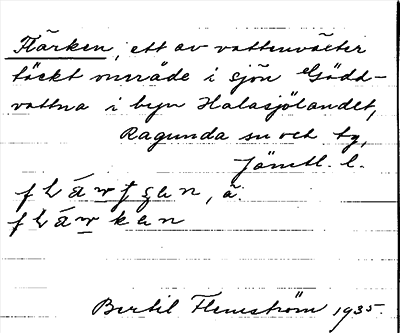 Flärken, ett av vattenväxter
täckt område i sjön Gädd-
vattna i byn Halasjölandet,
Ragunda sn och tg,
Jämtl. l.
Bertil Flemström 1935.